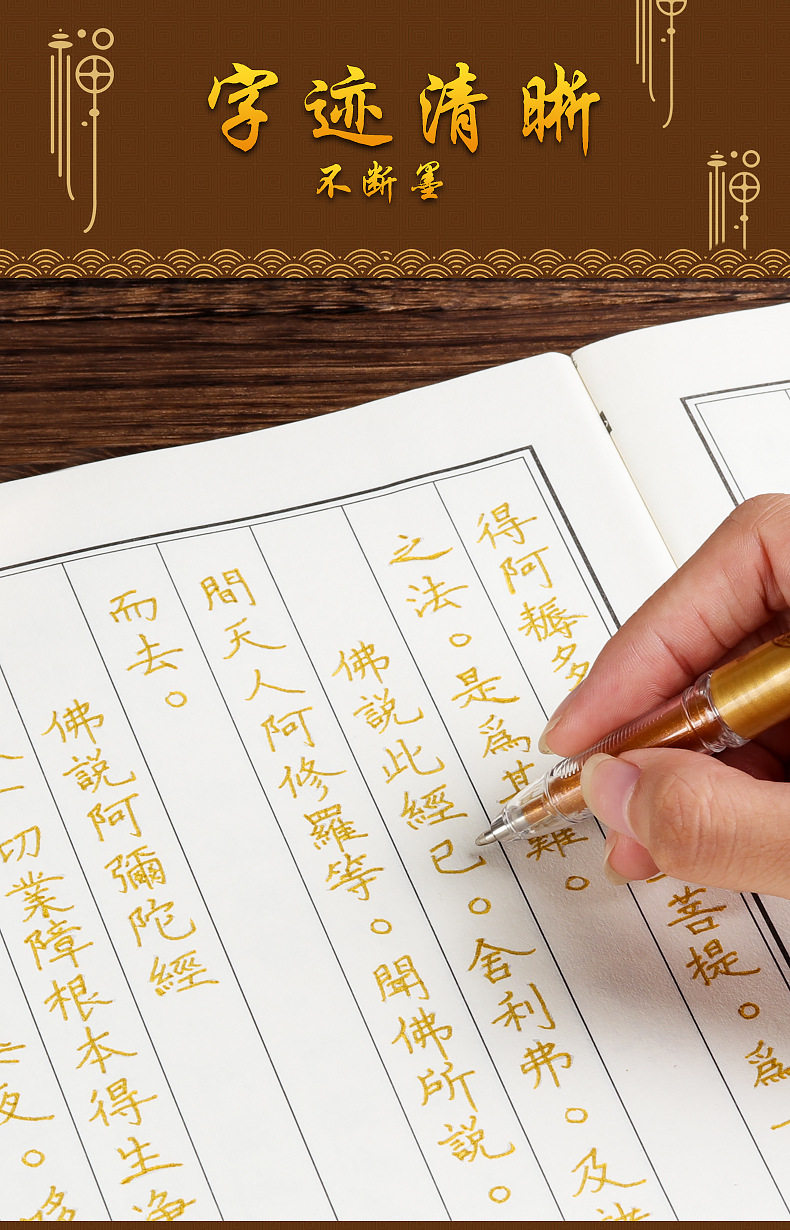 禅
禅
禅
字迹清晰
不断墨
得阿耨多菩提。爲一
之法。是爲甚難。
佛說此經已。舍利弗。及諸
間天人阿修羅等。聞佛所說。
而去。
佛說阿彌陀經
一切業障根本得生淨
夜。哆